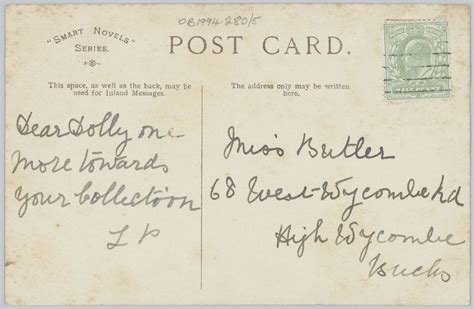 OB1994.280/5
"SMART NOVELS"
SERIES.
POST CARD.
This space, as well as the back, may be
used for Inland Messages.
The address only may be written
here.
Dear Dolly one
more towards
your Collection
L P
Miss Butler
68 West-Wycombe Rd
High Wycombe
Bucks